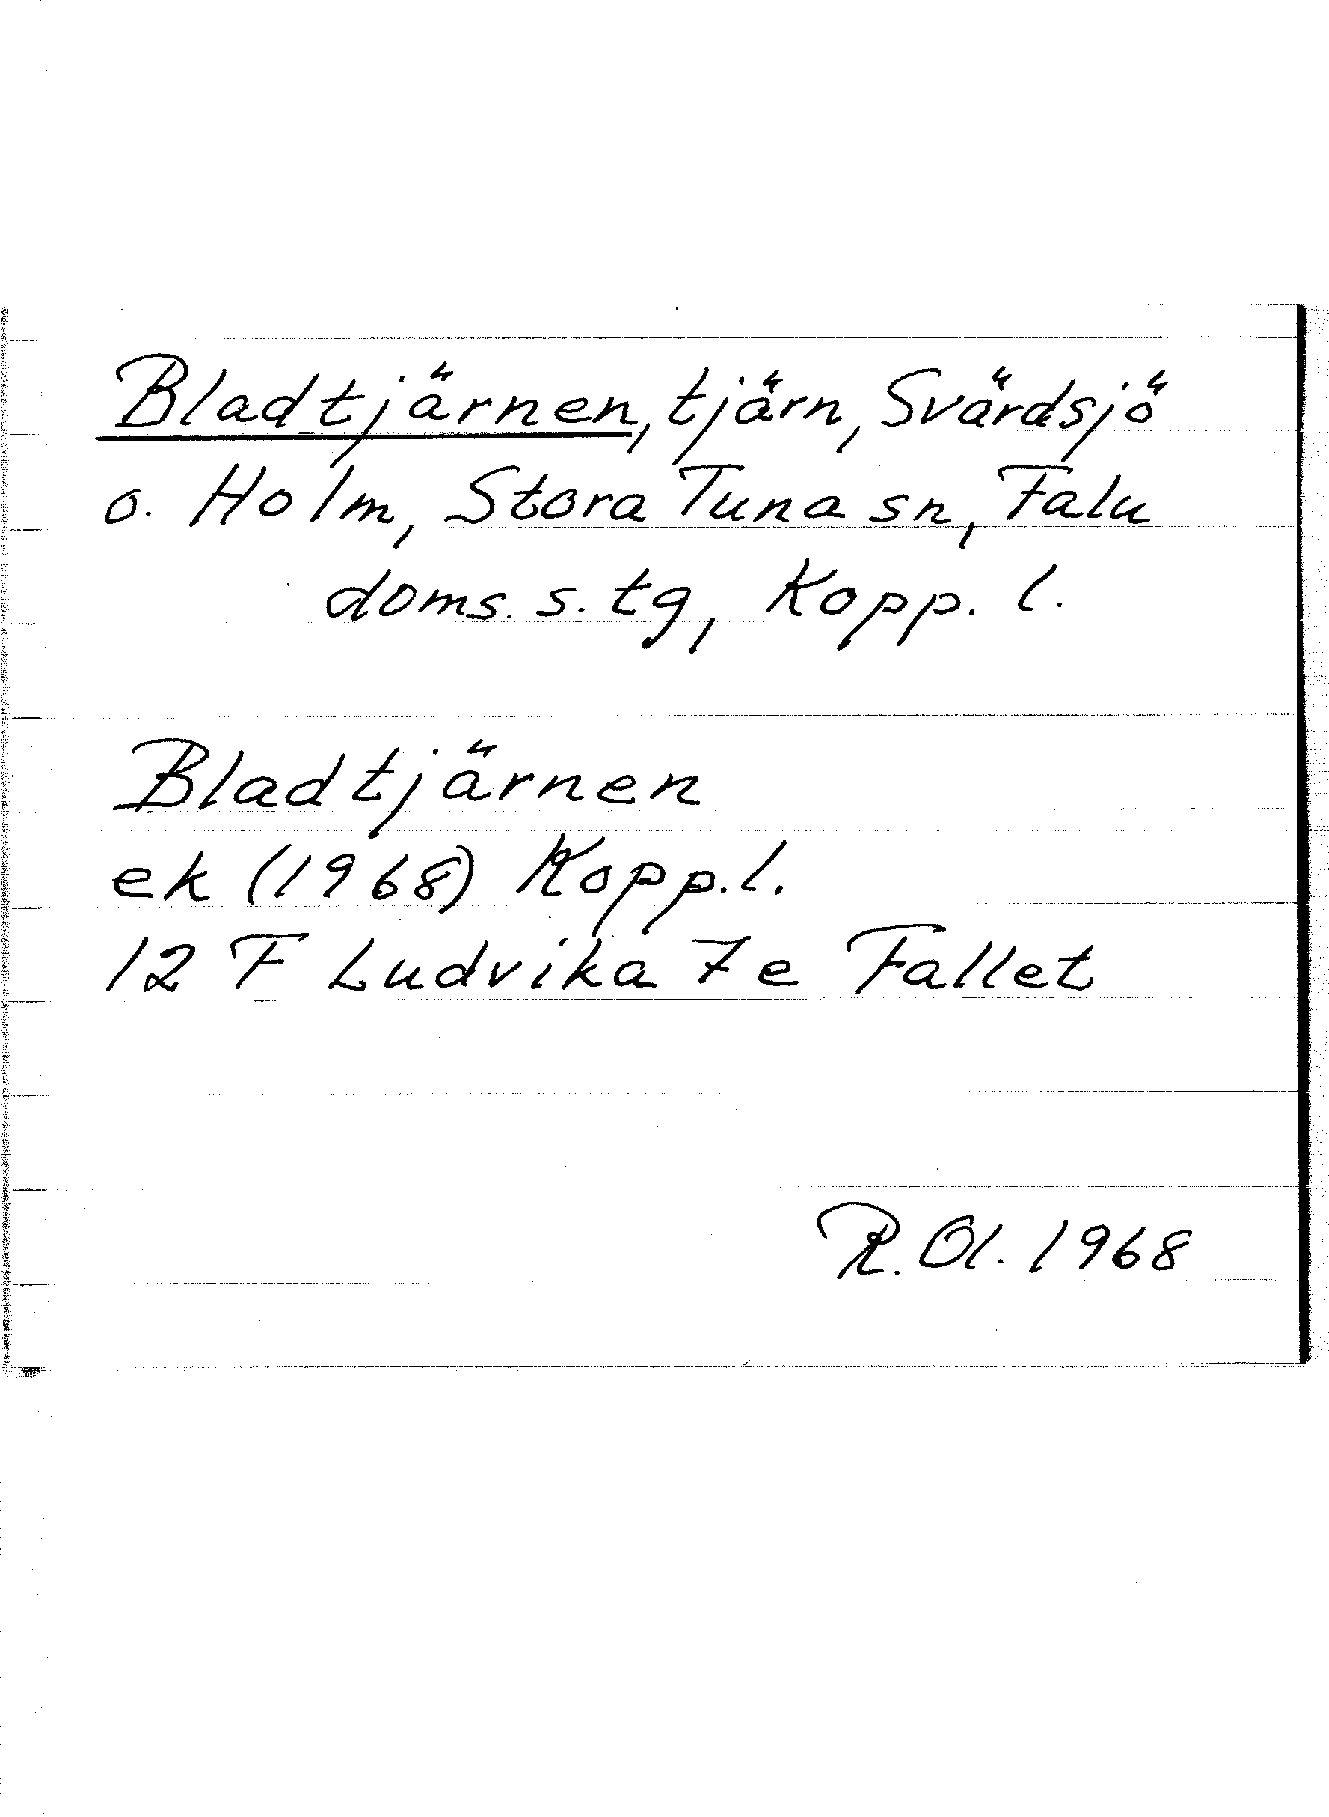 Bladtjärnen, tjärn, Svärdsjö
o. Holm, Stora Tuna sn, Falu
doms. s. tg, Kopp. l.
Bladtjärnen
ek (1968) Kopp. l.
12 F Ludvika 7 e Fallet
R. Ol. 1968